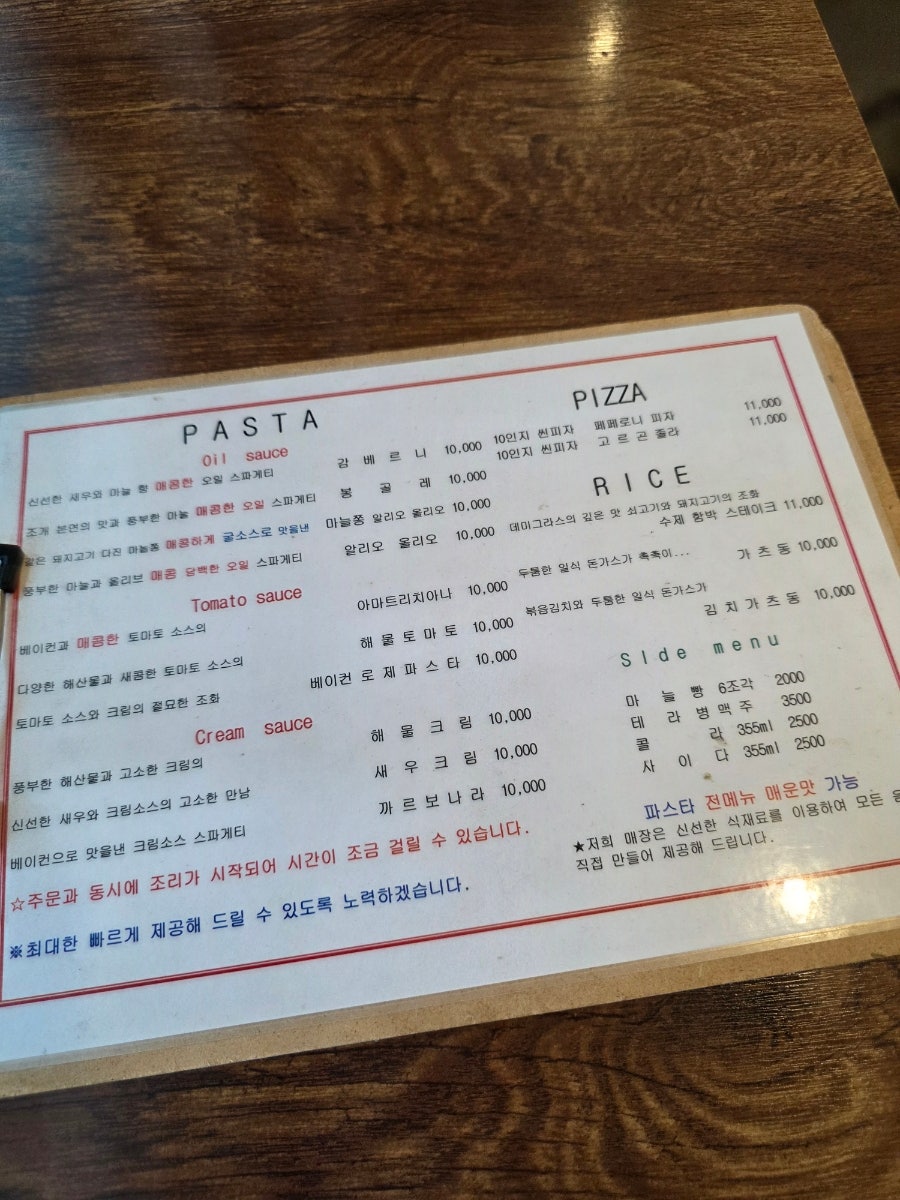 PASTA
Oil sauce
신선한 새우와 마늘 향 매콤한 오일 스파게티 감베르니 10,000
조개 본연의 맛과 풍부한 마늘 매콤한 오일 스파게티 봉골레 10,000
같은 돼지고기 다진 마늘쫑 매콤하게 굴소스로 맛을낸 마늘쫑 알리오 올리오 10,000
풍부한 마늘과 올리브 매콤 담백한 오일 스파게티 알리오 올리오 10,000
Tomato sauce
베이컨과 매콤한 토마토 소스의 아마트리치아나 10,000
다양한 해산물과 새콤한 토마토 소스의 해물토마토 10,000
토마토 소스와 크림의 절묘한 조화 베이컨 로제파스타 10,000
Cream sauce
풍부한 해산물과 고소한 크림의 해물크림 10,000
신선한 새우와 크림소스의 고소한 만남 새우크림 10,000
베이컨으로 맛을낸 크림소스 스파게티 까르보나라 10,000
☆주문과 동시에 조리가 시작되어 시간이 조금 걸릴 수 있습니다.
※최대한 빠르게 제공해 드릴 수 있도록 노력하겠습니다.
PIZZA
10인지 씬피자 페페로니 피자 11,000
10인지 씬피자 고르곤졸라 11,000
RICE
데미그라스의 깊은 맛 쇠고기와 돼지고기의 조화
수제 함박 스테이크 11,000
두툼한 일식 돈가스가 촉촉이...
가츠동 10,000
볶음김치와 두툼한 일식 돈가스가
김치가츠동 10,000
SIde menu
마늘빵 6조각 2000
테라병맥주 3500
콜라 355ml 2500
사이다 355ml 2500
파스타 전메뉴 매운맛 가능
★저희 매장은 신선한 식재료를 이용하여 모든
직접 만들어 제공해 드립니다.